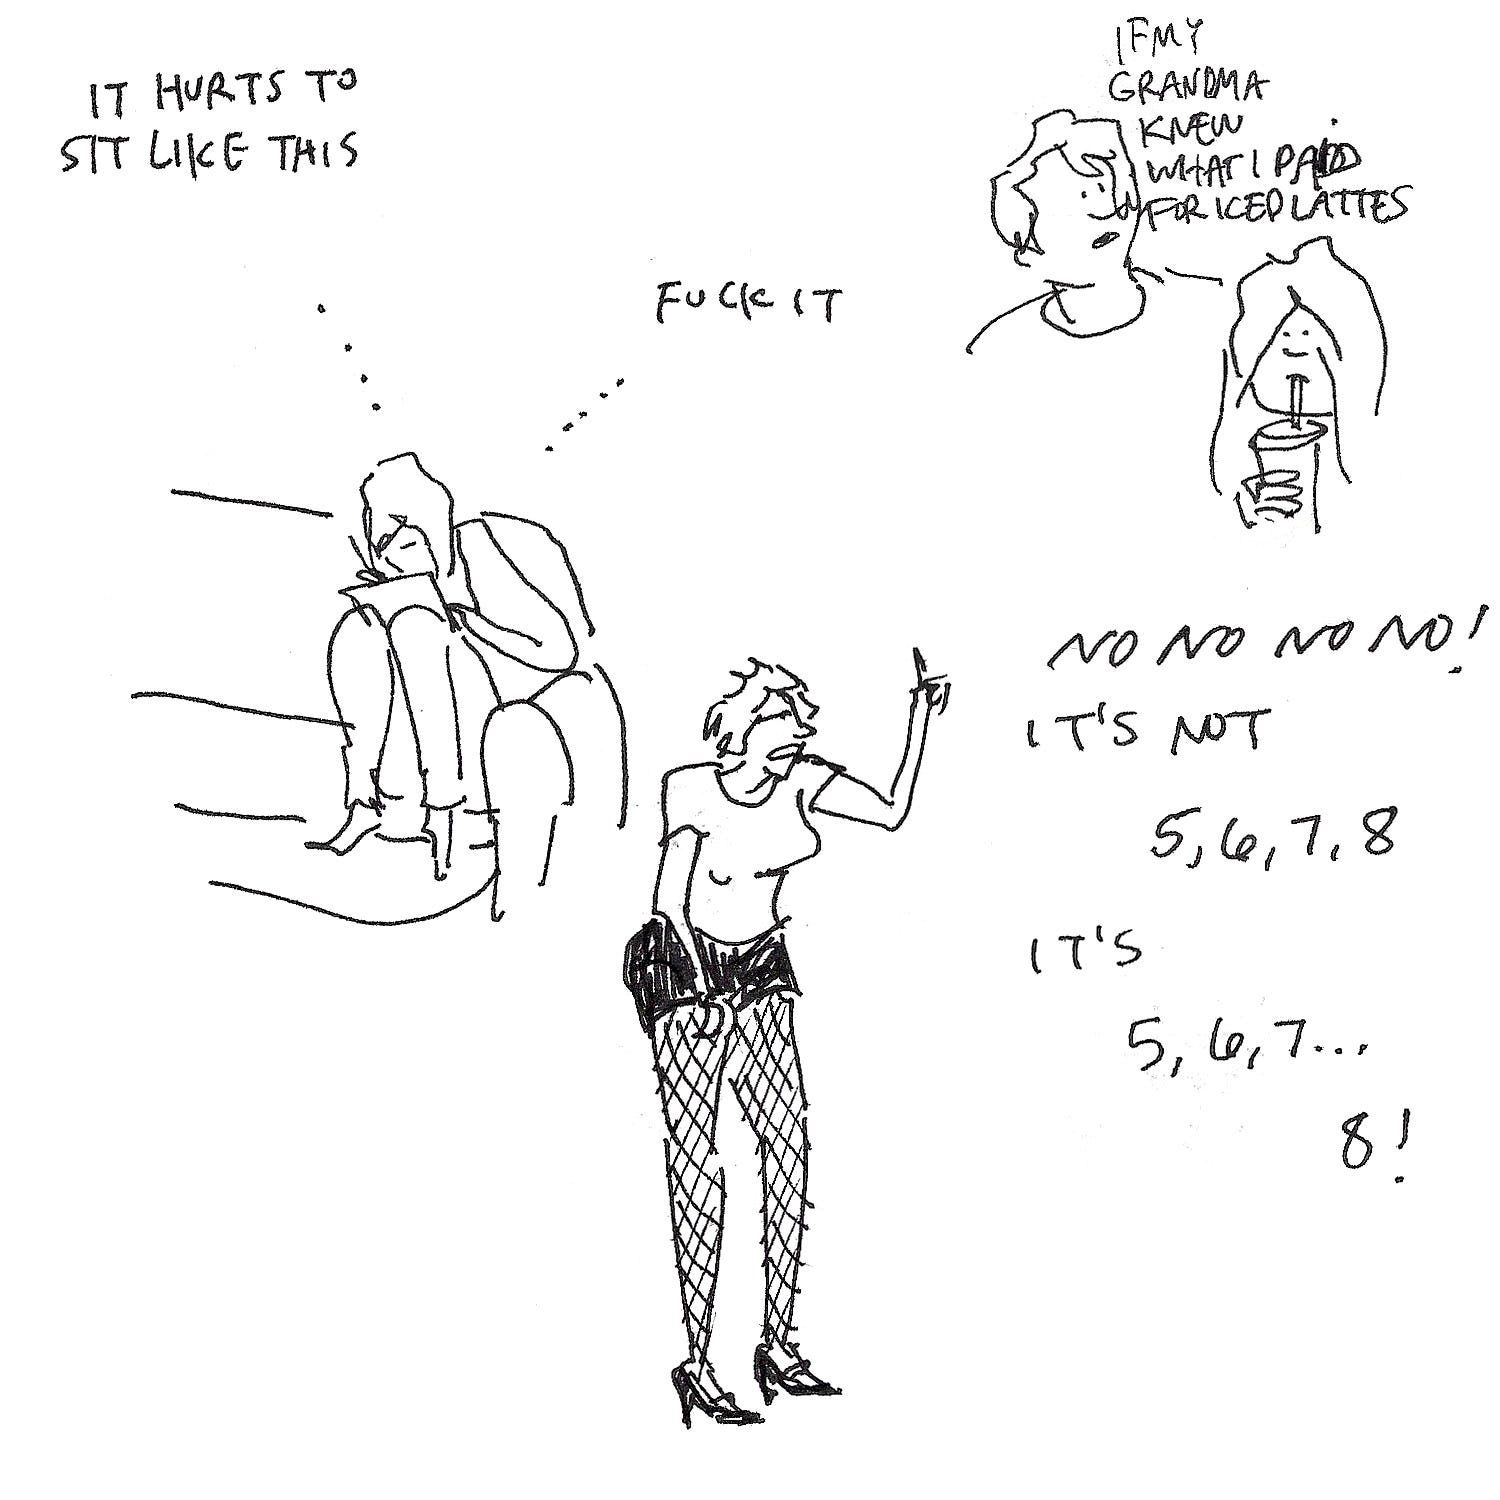 IT HURTS TO
SIT LIKE THIS
FUCK IT
IF MY
GRANDMA
KNEW
WHAT I PAID
FOR ICED LATTES
NO NO NO NO!
IT'S NOT
5, 6, 7, 8
IT'S
5, 6, 7...
8!